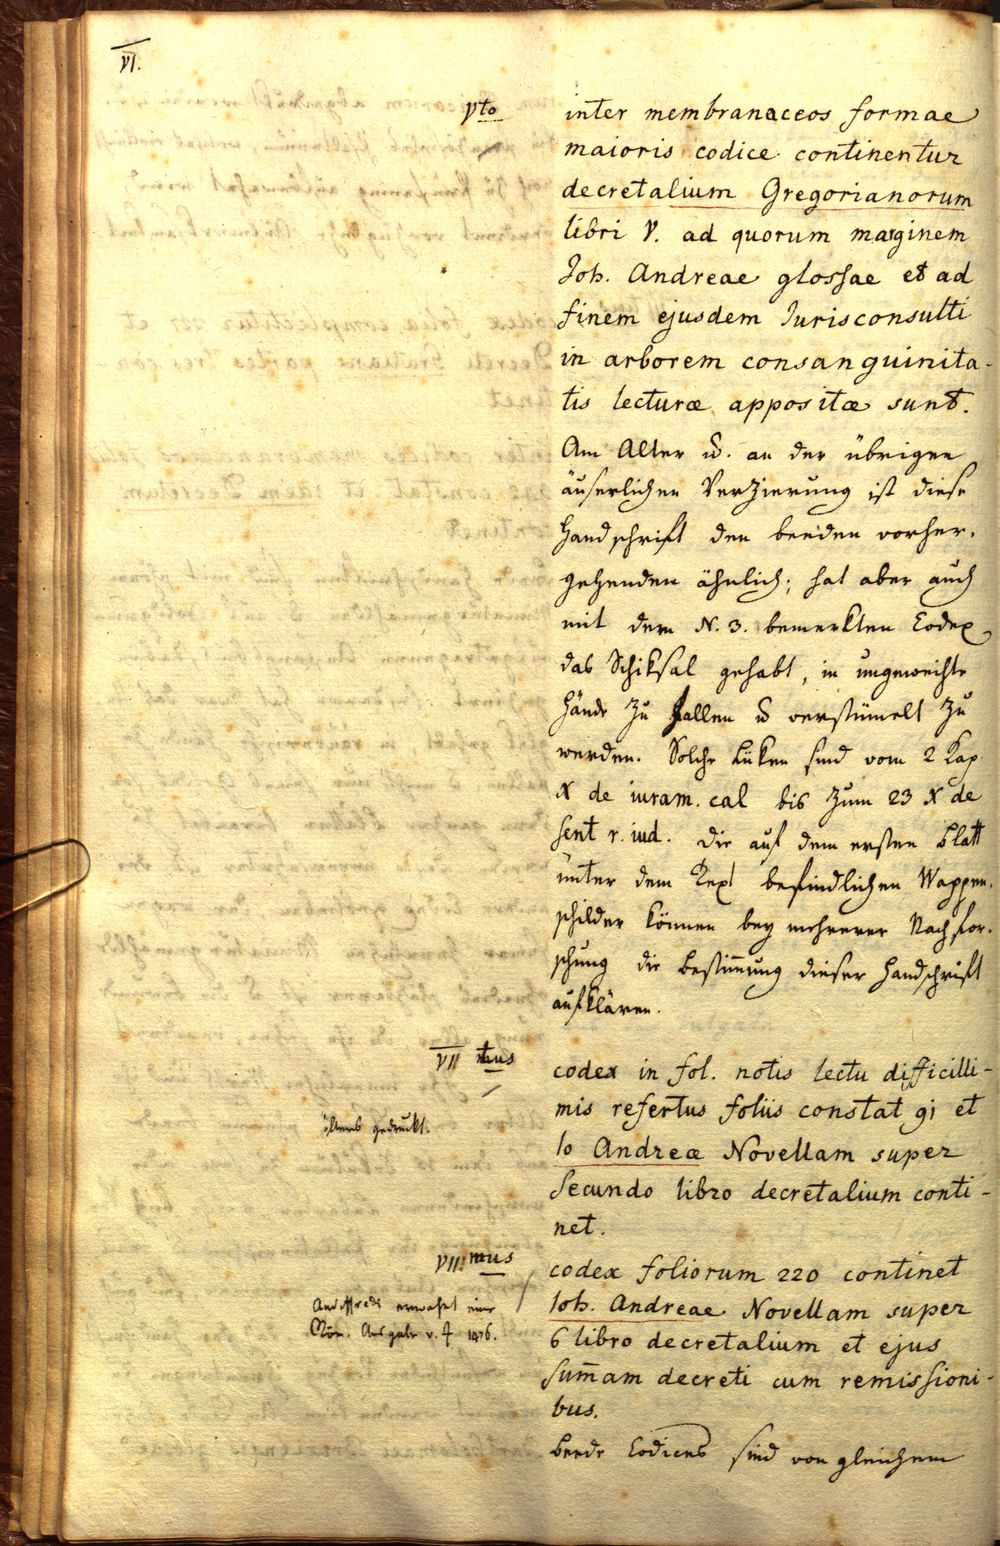 VI.
Vto
inter membranaceos formae
maioris codice continentur
decretalium Gregorianorum
libri V. ad quorum marginem
Joh. Andreae glossae et ad
finem ejusdem Jurisconsulti
in arborem consanguinita-
tis lecturæ appositæ sunt.
Am Alter u. an der übrigen
äuserlichen Verzierung ist diese
Handschrift den beeden vorher-
gehenden ähnlich; hat aber auch
mit dem N. 3. bemerkten Codex
das Schiksal gehabt, in ungeweihte
Hände zu fallen u verstümelt zu
werden. Solche Lüken sind vom 2 Kap
X de iuram. cal bis zum 23 X de
sent r. iud. die auf dem ersten Blatt
unter dem Text befindlichen Wappen-
schilder können bey mehrerer Nachfor-
schung die Bestim̄ung dieser Handschrift
aufklären.
VII mus
codex in fol. notis lectu difficilli-
mis refertus foliis constat 91 et
öfters gedruckt.
Io Andreæ Novellam super
secundo libro decretalium conti-
net.
VIII mus
codex foliorum 220 continet
Audiffredi erwähnt einer
Joh. Andreae Novellam super
Röm. Ausgabe v. J 1476.
6 libro decretalium et ejus
sum̄am decreti cum remissioni-
bus.
Beede Codices sind von gleichem